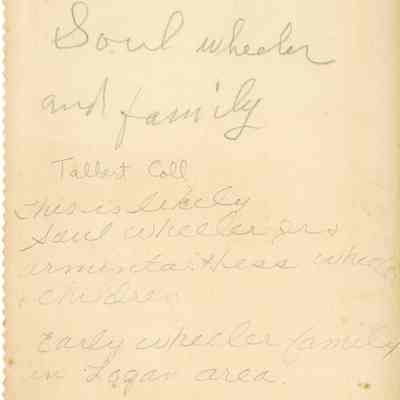 Soul wheeler
and family
Talbert Coll
This is likely
Saul wheeler
arminta Hess
children
Early wheeler family
in Logan area.